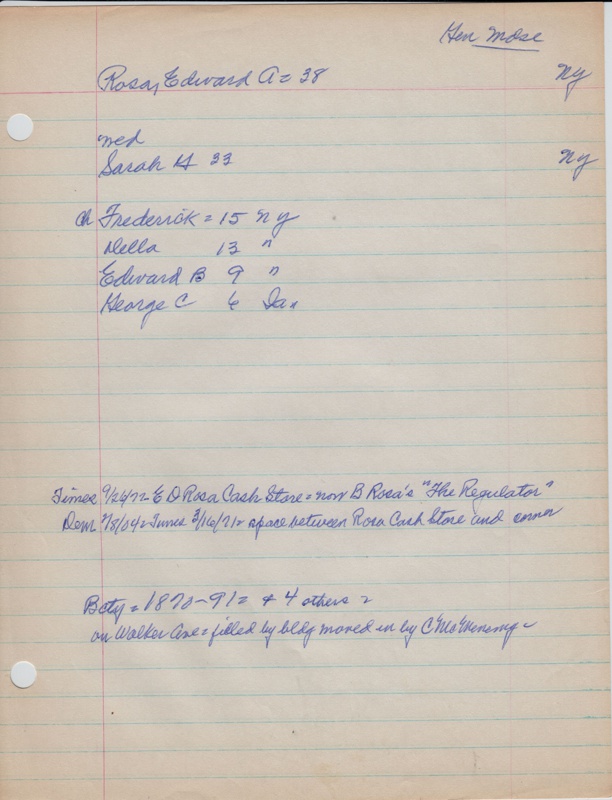 Gen Mdse
Rosa, Edward A = 38 NY
med
Sarah H 33 NY
Ch Frederick = 15 NY
Della 13 "
Edward B 9 "
George C 6 Ia.
Times 9/26/72 - E D Rosa Cash Store = now B Rosa's "The Regulator"
Dem 7/8/04 = Times 3/16/71 = space between Rosa Cash Store and corner
Bcty = 1870 - 91 = & 4 others =
on Walker Ave = filled by bldg moved in by C